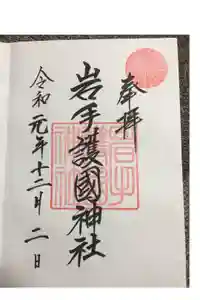 奉拝
岩手護國神社
令和元年十二月二日